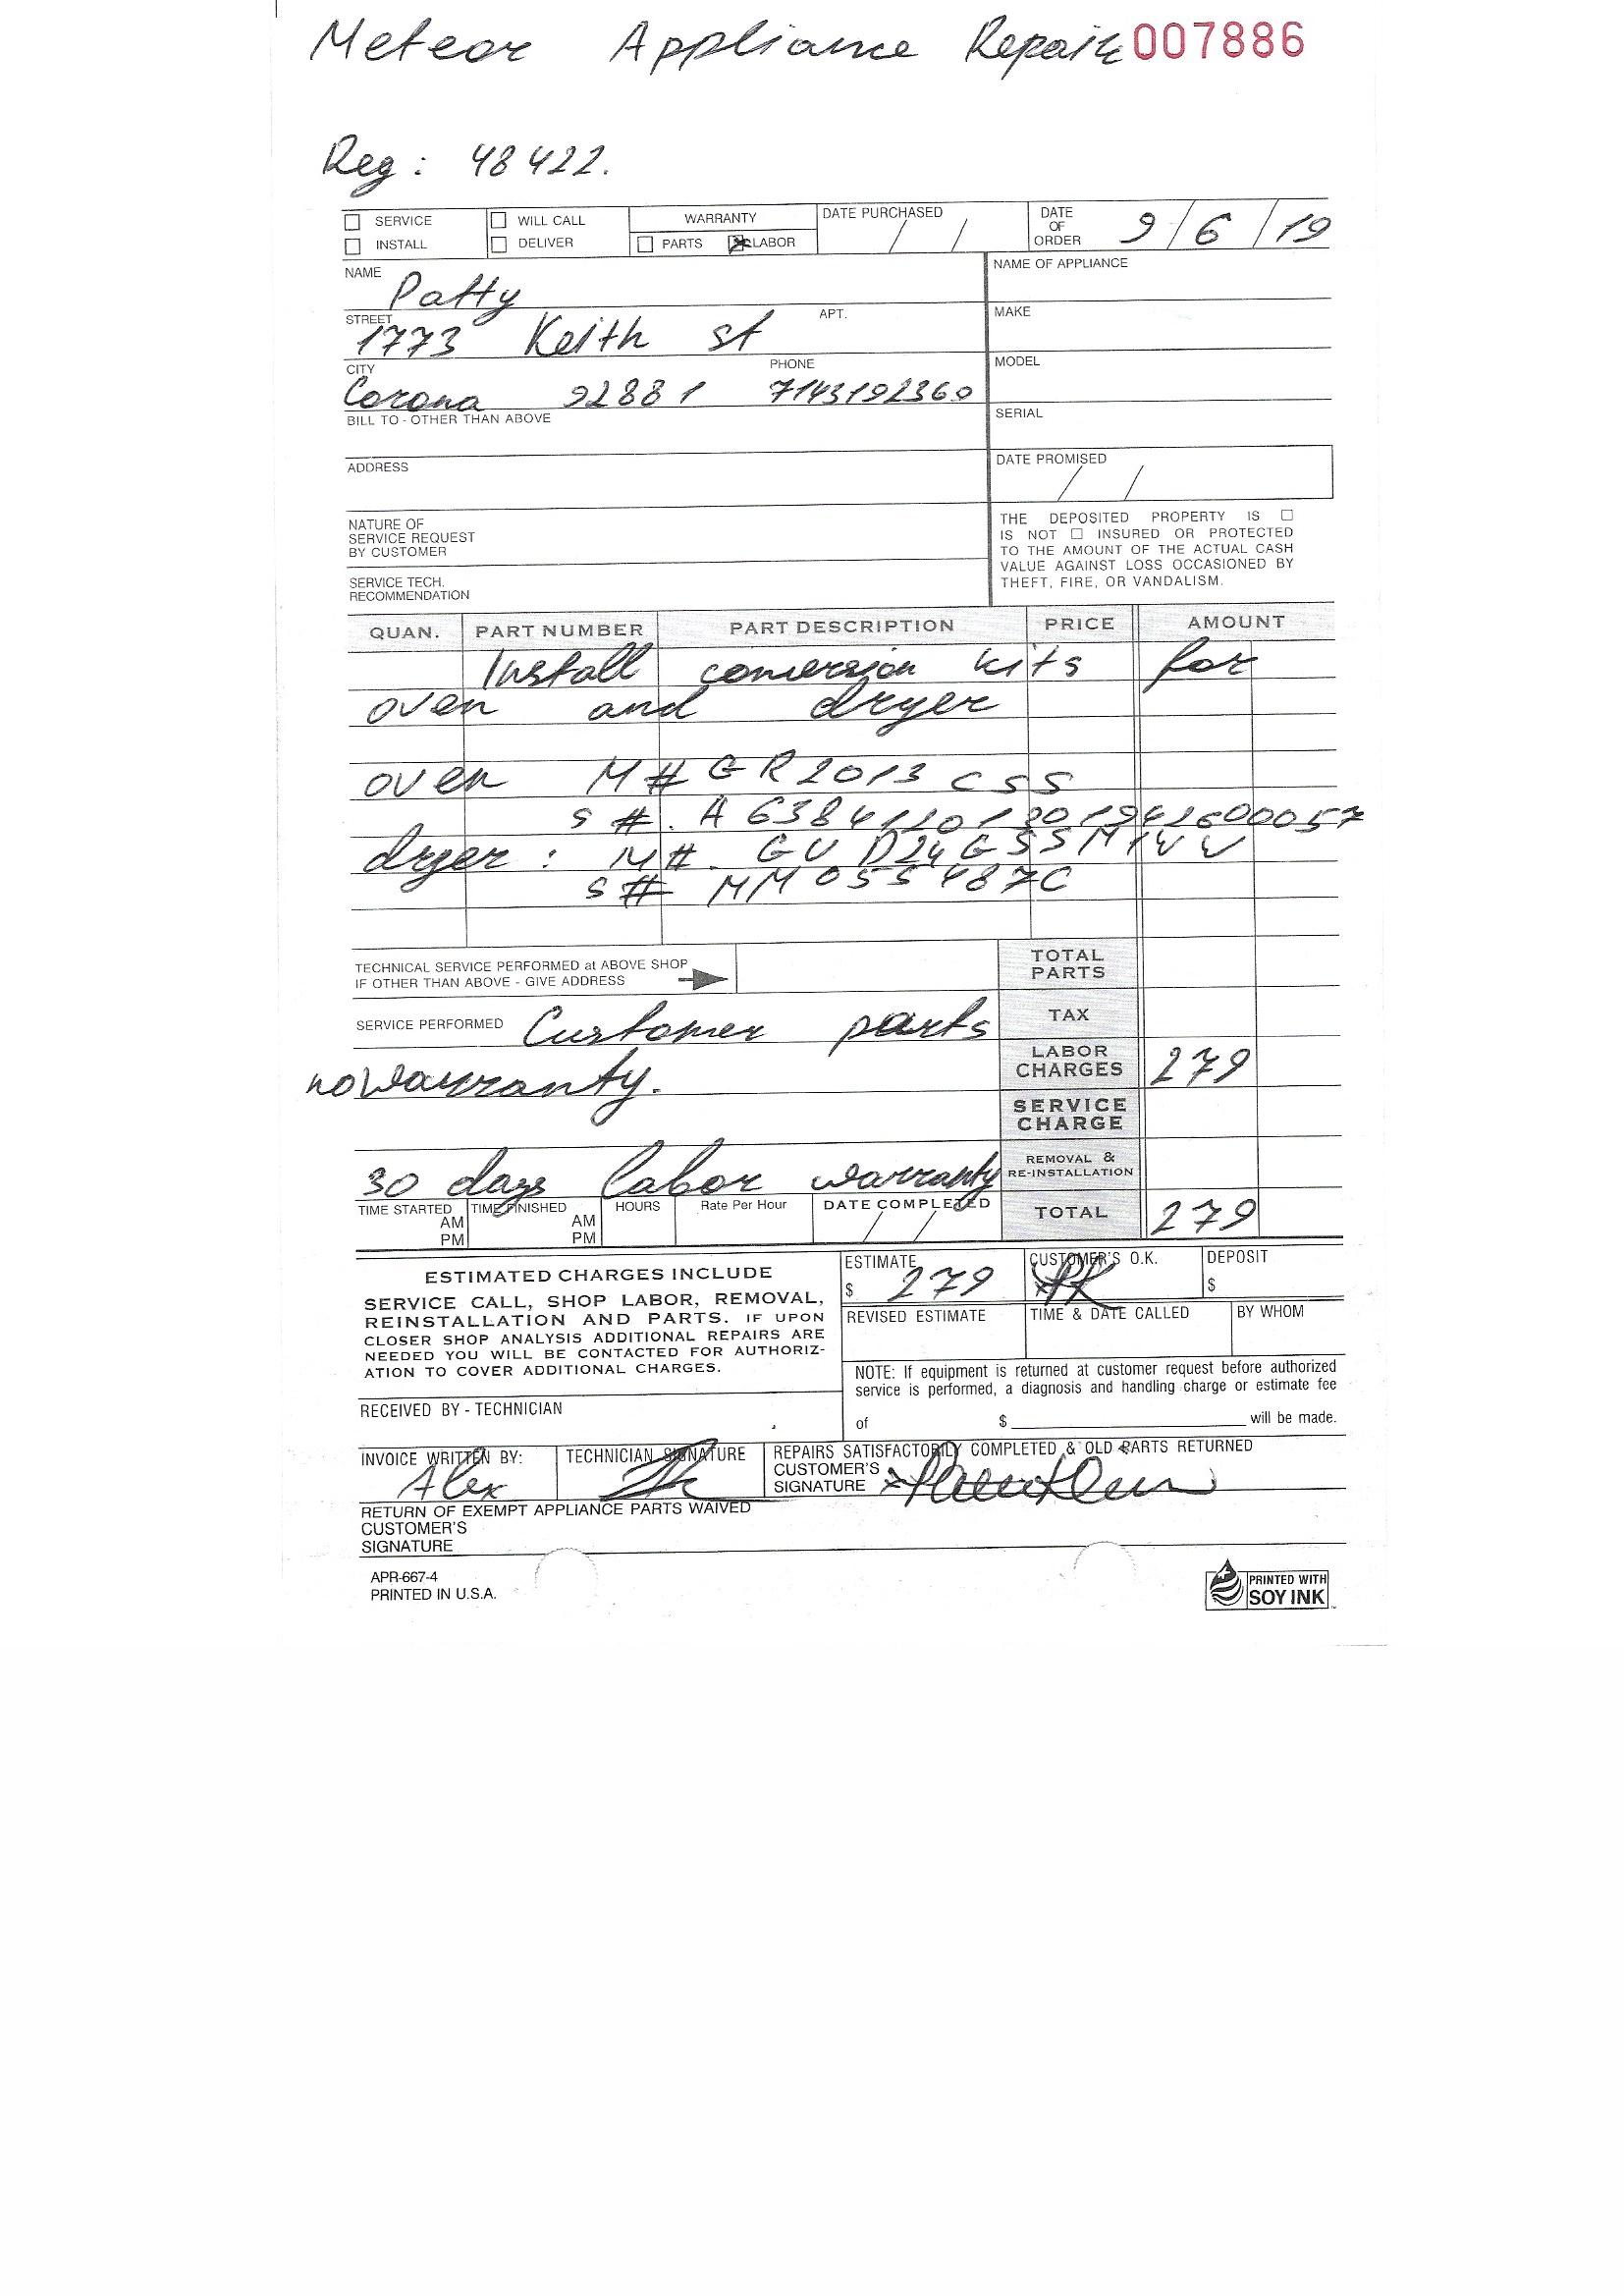 Meteor Appliance Repair 007886
Reg: 48422.
SERVICE WILL CALL WARRANTY DATE PURCHASED / / DATE OF ORDER 9/6/19
INSTALL DELIVER PARTS LABOR
NAME Patty NAME OF APPLIANCE
STREET 1773 Keith st APT. MAKE
CITY Corona 92881 PHONE 7143192360 MODEL
BILL TO - OTHER THAN ABOVE SERIAL
ADDRESS DATE PROMISED / /
NATURE OF
SERVICE REQUEST
BY CUSTOMER
SERVICE TECH.
RECOMMENDATION
THE DEPOSITED PROPERTY IS
IS NOT INSURED OR PROTECTED
TO THE AMOUNT OF THE ACTUAL CASH
VALUE AGAINST LOSS OCCASIONED BY
THEFT, FIRE, OR VANDALISM.
QUAN. PART NUMBER PART DESCRIPTION PRICE AMOUNT
Install conversion kits for
oven and dryer
oven M# GR2013CSS
S#.
dryer: M#. GUD24GSSM1WW
S# MM055487C
TECHNICAL SERVICE PERFORMED at ABOVE SHOP
IF OTHER THAN ABOVE - GIVE ADDRESS
TOTAL PARTS
SERVICE PERFORMED Customer parts TAX
no warranty. LABOR CHARGES 279
SERVICE CHARGE
30 days labor warranty REMOVAL & RE-INSTALLATION
TIME STARTED AM PM TIME FINISHED AM PM HOURS Rate Per Hour DATE COMPLETED / / TOTAL 279
ESTIMATED CHARGES INCLUDE
SERVICE CALL, SHOP LABOR, REMOVAL,
REINSTALLATION AND PARTS. IF UPON
CLOSER SHOP ANALYSIS ADDITIONAL REPAIRS ARE
NEEDED YOU WILL BE CONTACTED FOR AUTHORIZ-
ATION TO COVER ADDITIONAL CHARGES.
ESTIMATE $ 279 CUSTOMER'S O.K. PK DEPOSIT $
REVISED ESTIMATE TIME & DATE CALLED BY WHOM
NOTE: If equipment is returned at customer request before authorized
service is performed, a diagnosis and handling charge or estimate fee
of $ will be made.
RECEIVED BY - TECHNICIAN
INVOICE WRITTEN BY: Alex TECHNICIAN SIGNATURE REPAIRS SATISFACTORILY COMPLETED & OLD PARTS RETURNED
CUSTOMER'S
SIGNATURE
RETURN OF EXEMPT APPLIANCE PARTS WAIVED
CUSTOMER'S
SIGNATURE
APR-667-4
PRINTED IN U.S.A.
PRINTED WITH
SOY INK